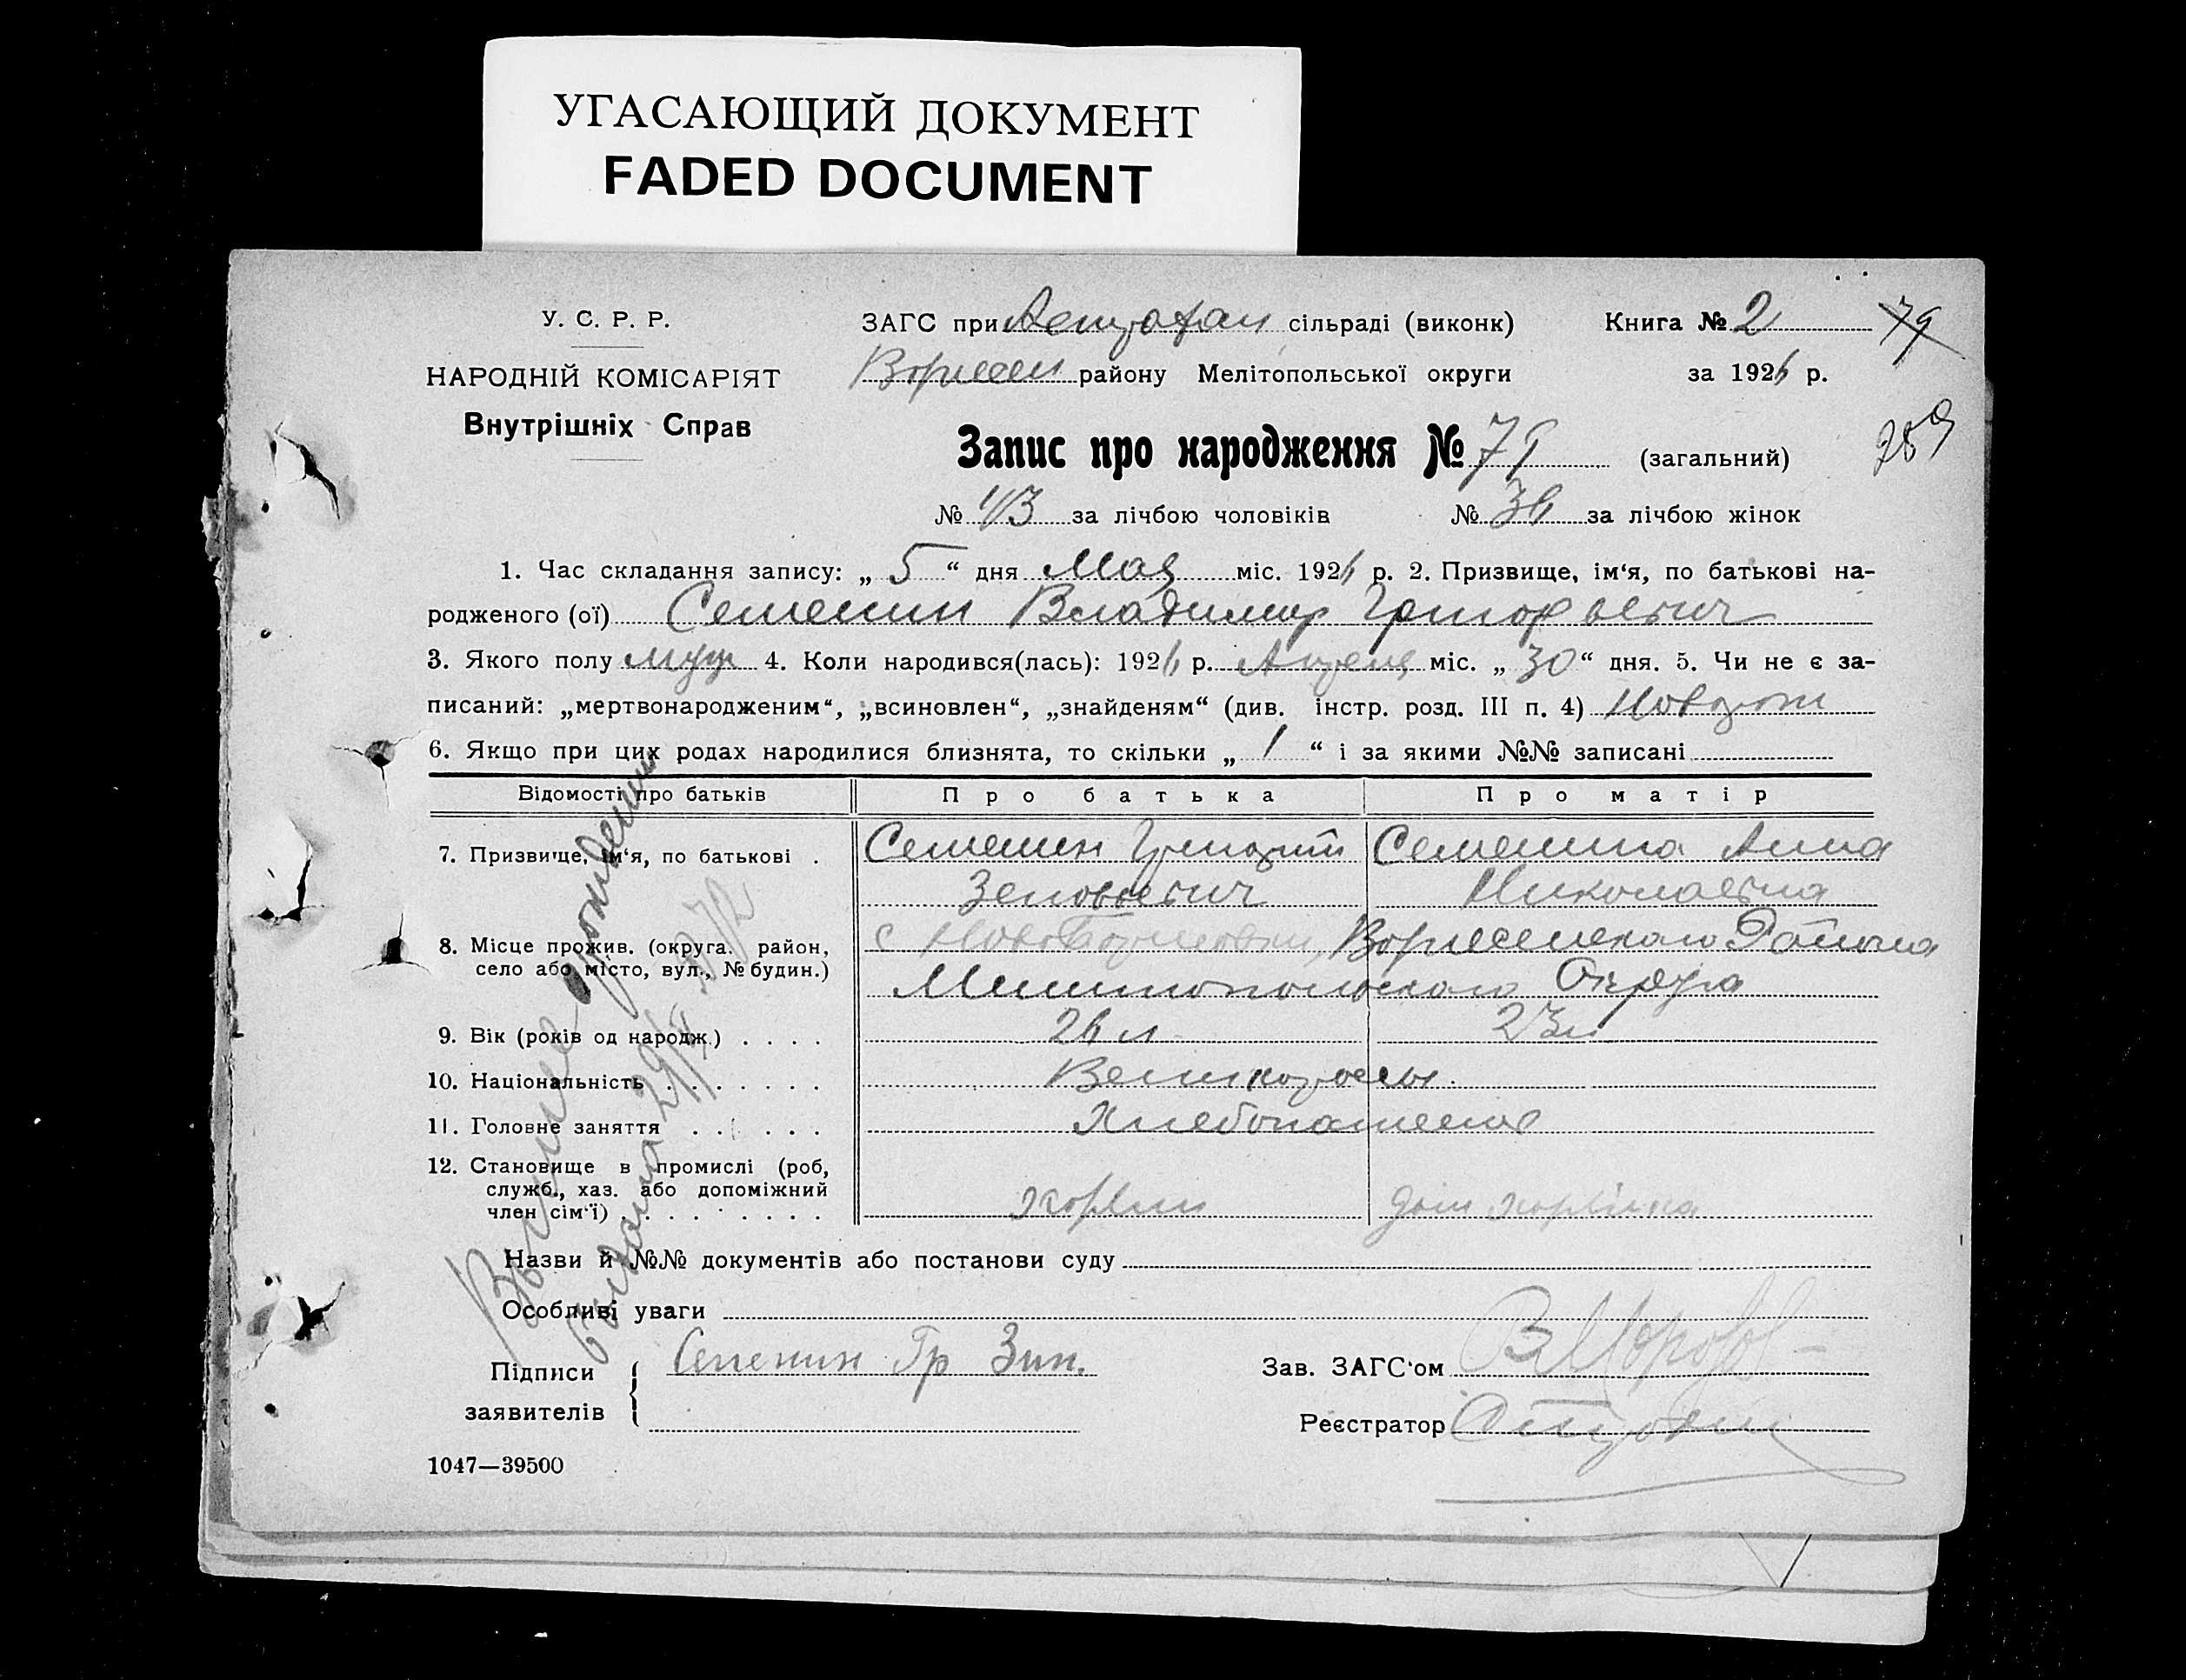 УГАСАЮЩИЙ ДОКУМЕНТ
FADED DOCUMENT
У. С. Р. Р.
НАРОДНІЙ КОМІСАРІЯТ
Внутрішніх Справ
ЗАГС при Астрахан сільраді (виконк)
района Мелітопольської округи
Книга № 2
за 1926 р.
79
259
Запис про народження № 79 (загальний)
№ 43 за лічбою чоловіків № 36 за лічбою жінок
1. Час складання запису: „ 5 “ дня Мая міс. 1926 р. 2. Призвище, ім‘я, по батькові на-
родженого (ої) Семенин Владимир Григорьевич
3. Якого полу муж 4. Коли народився(лась): 1926 р. Апреля міс. „ 30 “ дня. 5. Чи не є за-
писаний: „мертвонародженим“, „всиновлен“, „знайденям“ (див. інстр. розд. III п. 4) Новорож
6. Якщо при цих родах народилися близнята, то скільки „ 1 “ і за якими №№ записані
Відомості про батьків Про батька Про матір
7. Призвище, ім‘я, по батькові . Семенин Григорий Семенина Анна
Зеновьевич Николаевна
8. Місце прожив. (округа. район,
село або місто, вул., № будин.)
с Района
Мелитопольского Округа
9. Вік (років од народж.) . . . . 26 л 23 л
10. Національність . . . . . . . Великороссы.
11. Головне заняття . . . . . . Хлебопашество
12. Становище в промислі (роб,
служб., хаз. або допоміжний
член сім‘ї) . . . . . . . . . хозяин дом хозяйка
Назви й №№ документів або постанови суду
Особливі уваги
Підписи
заявителів
Семенин Гр Зин.
Зав. ЗАГС‘ом В Морозов
Реєстратор
1047—39500
рождении
выдана 29/V 1972